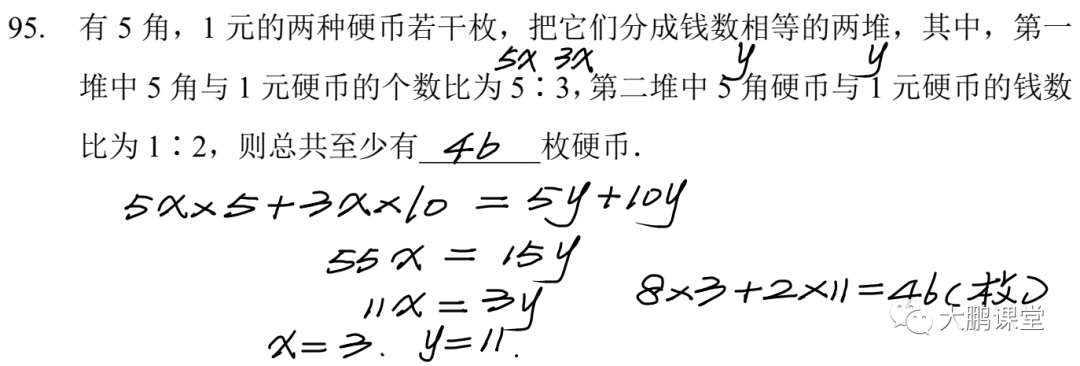 95. 有 5 角，1 元的两种硬币若干枚，把它们分成钱数相等的两堆，其中，第一
5x 3x y y
堆中 5 角与 1 元硬币的个数比为 5∶3，第二堆中 5 角硬币与 1 元硬币的钱数
比为 1∶2，则总共至少有 46 枚硬币．
5x×5+3x×10 = 5y+10y
55x = 15y
11x = 3y
8×3+2×11=46(枚)
x=3. y=11.
大鹏课堂